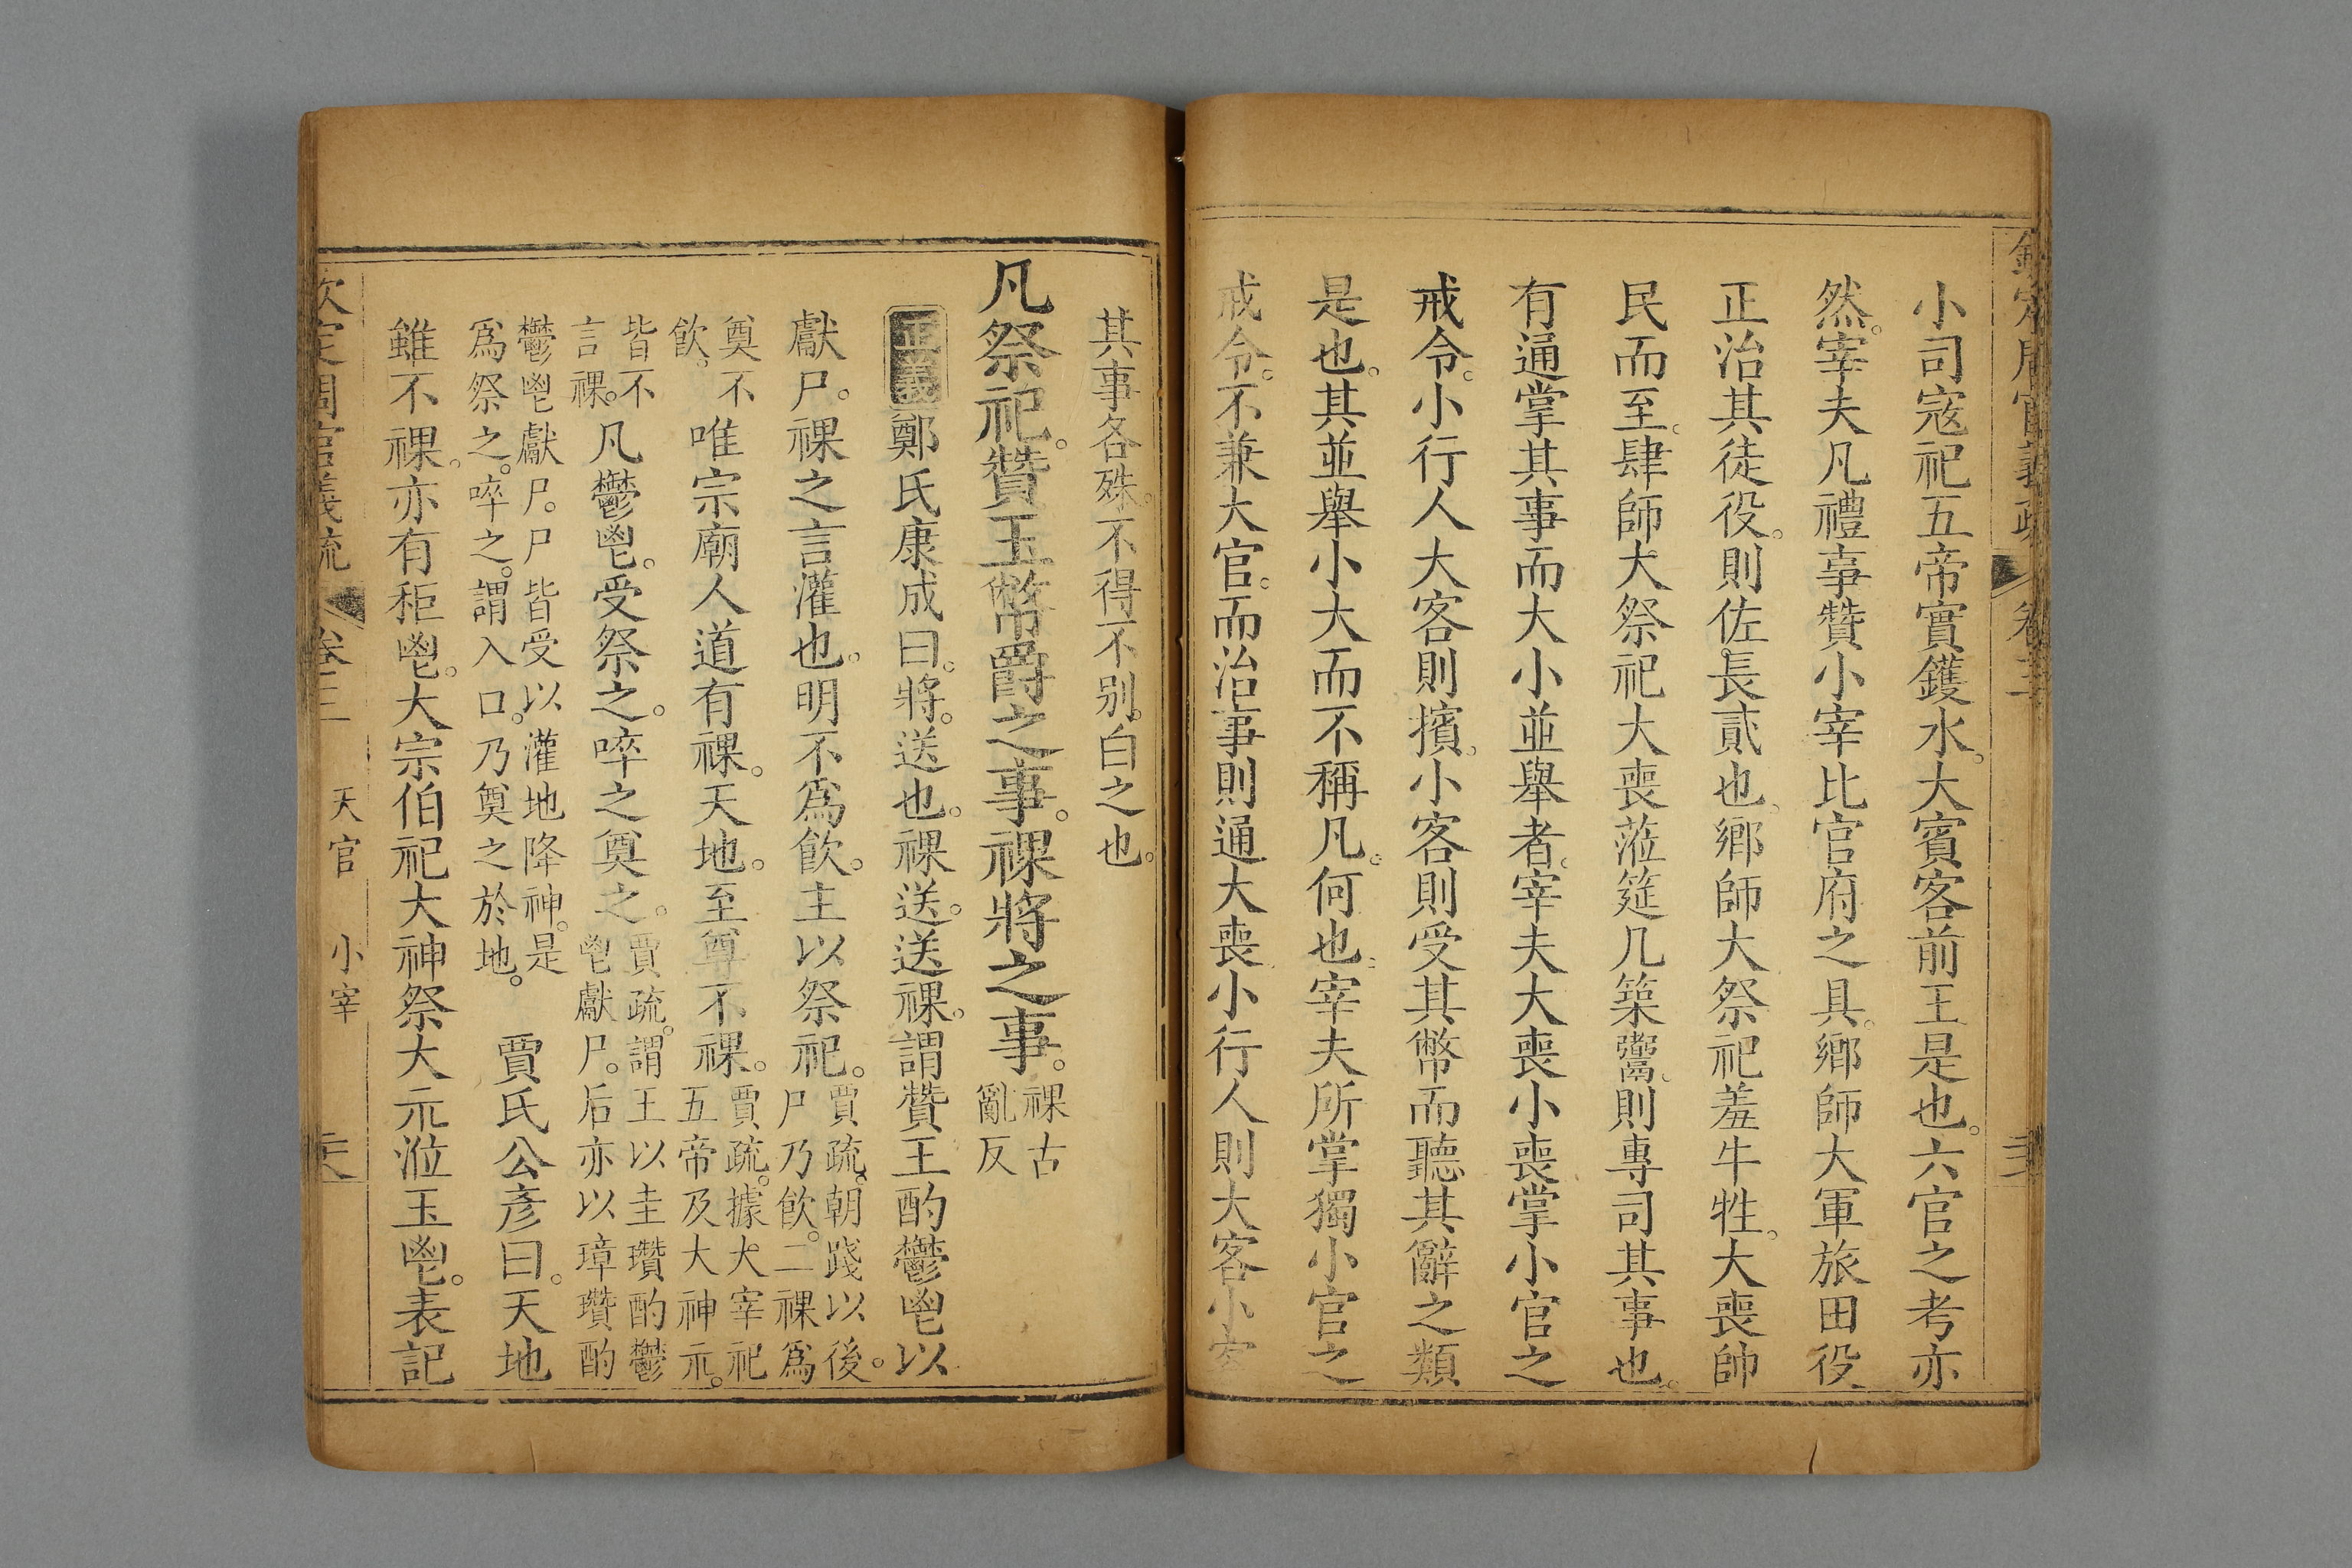 欽定周官義疏 卷三
小司寇祀五帝實鑊水。大賓客前王是也。六官之考亦
然。宰夫凡禮事贊小宰比官府之具。鄉師大軍旅田役
正治其徒役。則佐長貳也。鄉師大祭祀羞牛牲。大喪帥
民而至。肆師大祭祀大喪涖筵几築鬻。則專司其事也。
有通掌其事而大小並舉者。宰夫大喪小喪掌小官之
戒令。小行人大客則擯。小客則受其幣而聽其辭之類
是也。其並舉小大而不稱凡。何也。宰夫所掌獨小官之
戒令。不兼大官。而治事則通大喪小行人則大客小客
其事各殊。不得不别白之也。
凡祭祀。贊玉幣爵之事。祼將之事。祼古亂反
正義鄭氏康成曰。將。送也。祼送。送祼。謂贊王酌鬱鬯以
獻尸。祼之言灌也。明不爲飲。主以祭祀。賈疏。朝踐以後。尸乃飲。二祼爲
奠不飲。唯宗廟人道有祼。天地。至尊不祼。賈疏。據大宰祀五帝及大神示。
皆不言祼。凡鬱鬯。受祭之。啐之奠之。賈疏。謂王以圭瓚酌鬱鬯獻尸。后亦以璋瓚酌
鬱鬯獻尸。尸皆受以灌地降神。是爲祭之。啐之。謂入口。乃奠之於地。 賈氏公彦曰。天地
雖不祼。亦有秬鬯。大宗伯祀大神祭大示涖玉鬯。表記
欽定周官義疏 卷三 天官 小宰